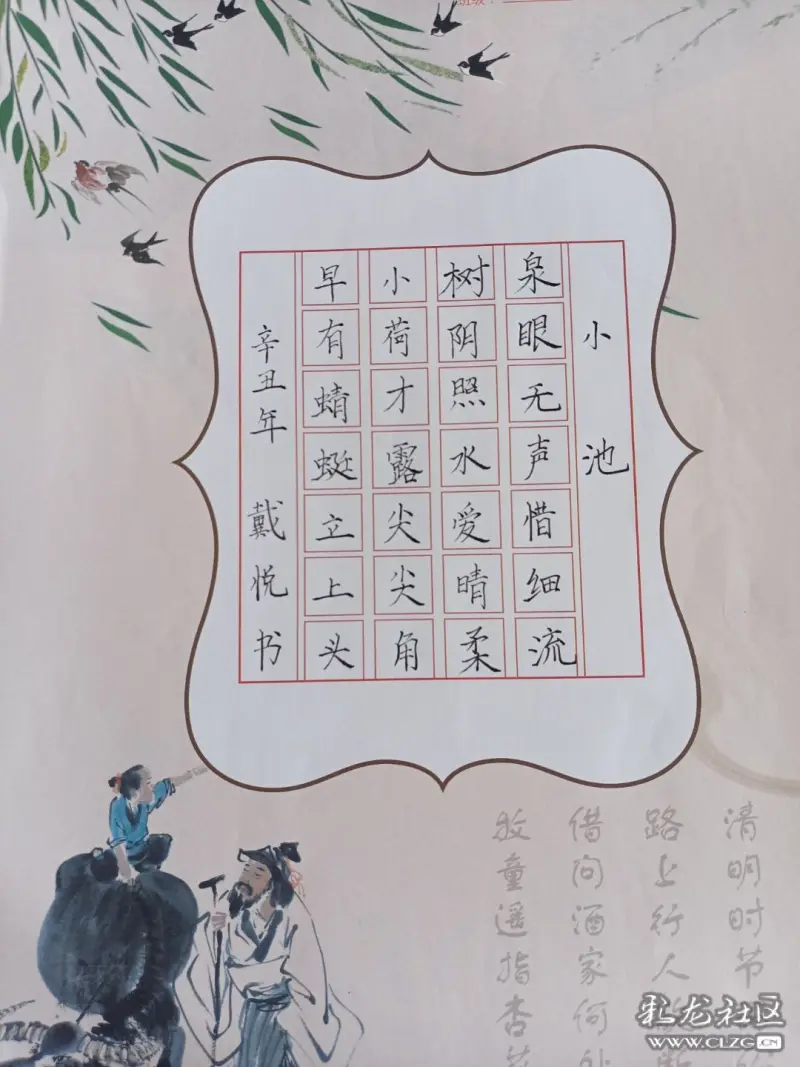 班级:
小池
泉眼无声惜细流
树阴照水爱晴柔
小荷才露尖尖角
早有蜻蜓立上头
辛丑年 戴悦书
清明时节
路上行人
借问酒家何处
牧童遥指杏花
彩龙社区
WWW.CLZG.CN